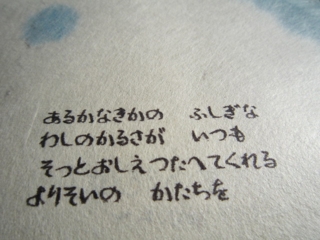 あるかなきかの　ふしぎな
わしのかるさが　いつも
そっとおしえつたへてくれる
よりそいの　かたちを